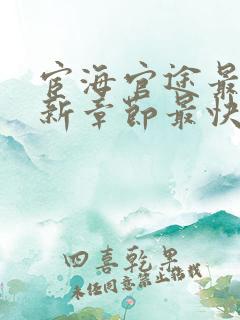 宦海官途最
新章节最快
四喜乾果
未经同意禁止修改